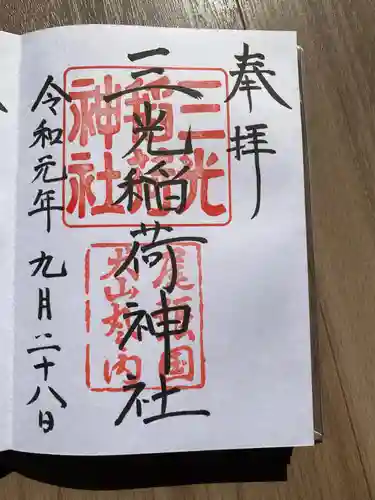 奉拝
三光稲荷神社
令和元年九月二十八日
三光
稲荷
神社
尾張国
犬山城内